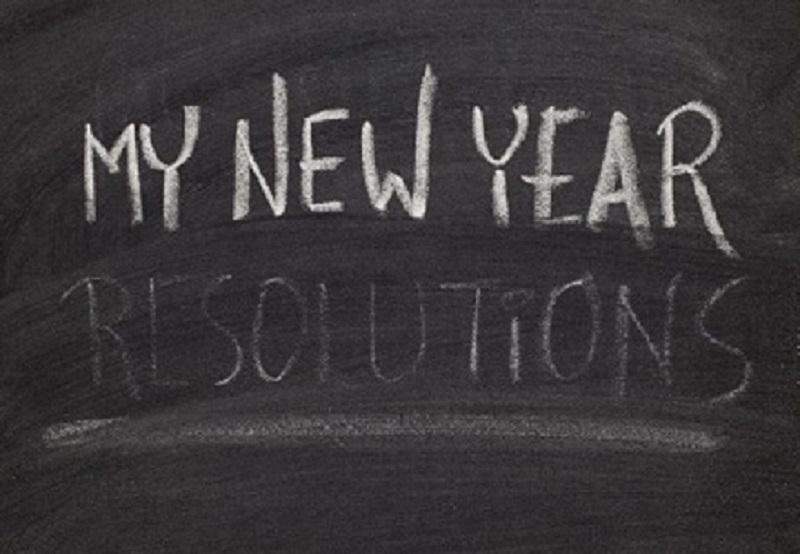 MY NEW YEAR
RESOLUTIONS